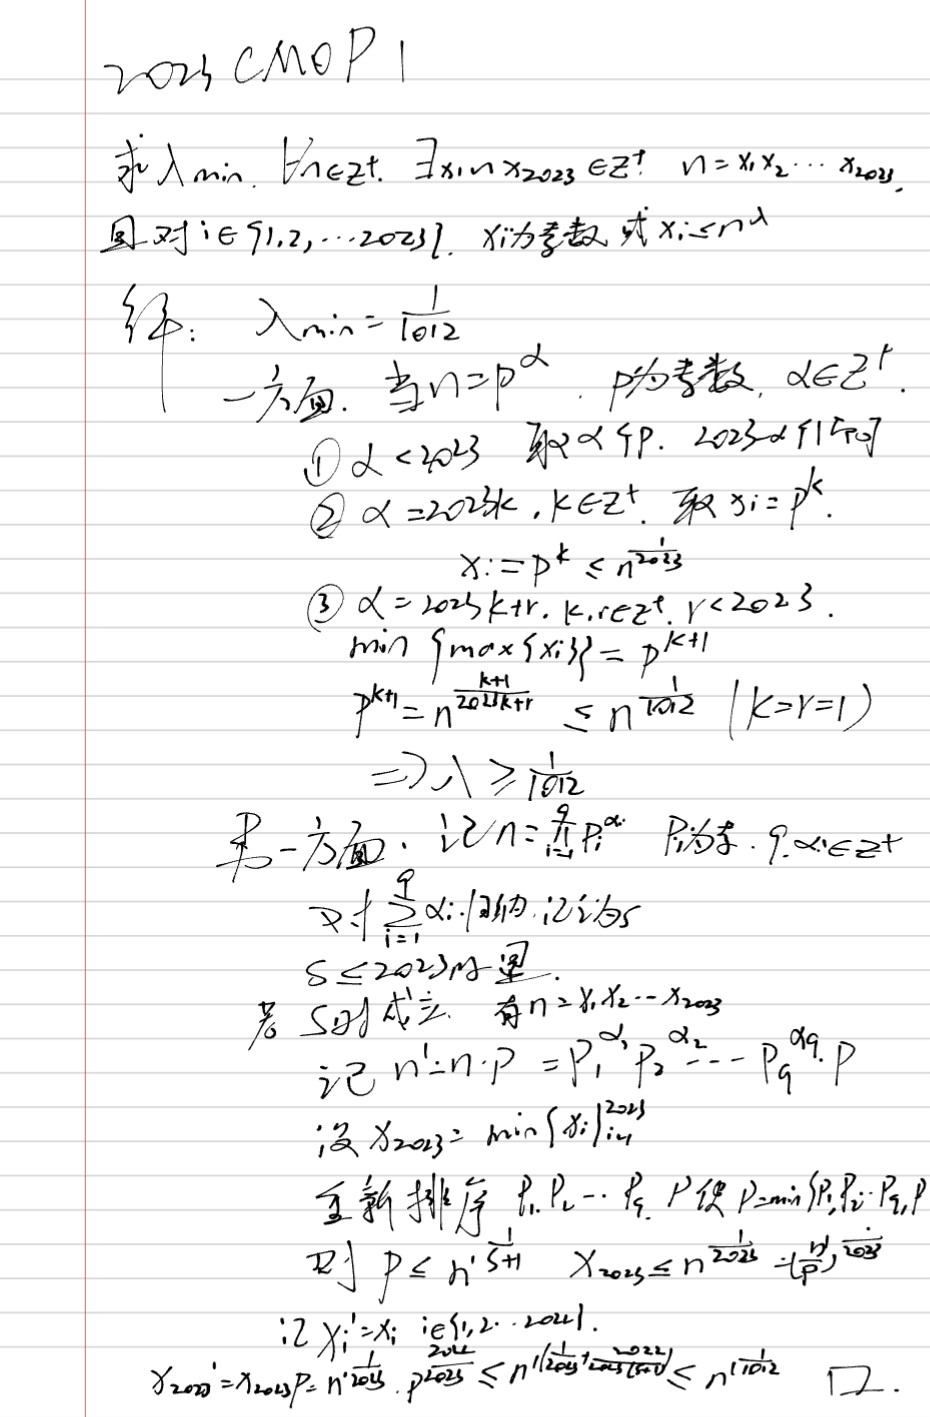 2023 CMO P1
求λmin. ∀n∈Z⁺. ∃x₁~x₂₀₂₃∈Z⁺. n=x₁x₂…x₂₀₂₃.
且对i∈{1,2,…2023}. xᵢ为素数或xᵢ≤n^λ
解: λmin=1/1012
一方面. 当n=p^α. p为素数, α∈Z⁺.
① α<2023 取α个p. 2023-α个1即可
② α=2023k, k∈Z⁺. 取xᵢ=p^k.
xᵢ=p^k≤n^(1/2023)
③ α=2023k+r. k,r∈Z⁺. r<2023.
min{max{xᵢ}}=p^(k+1)
p^(k+1)=n^((k+1)/(2023k+r))≤n^(1/1012) (k=r=1)
=>λ≥1/1012
另一方面. 记n=∏_(i=1)^q pᵢ^αᵢ pᵢ为素. q,αᵢ∈Z⁺
对∑_(i=1)^q αᵢ归纳. 记之为S
S≤2023时显.
若S时成立. 有n=x₁x₂…x₂₀₂₃
记n'=n·p=p₁^α₁ p₂^α₂…p_q^α_q·p
设x₂₀₂₃=min{xᵢ}_(i=1)^2023
重新排序p₁.p₂…p_q.p使p=min{p₁,p₂…p_q,p
则p≤n'^(1/(S+1)) x₂₀₂₃≤n^(1/2023)=(n'/p)^(1/2023)
记xᵢ'=xᵢ i∈{1,2…2022}.
x₂₀₂₃'=x₂₀₂₃p=n'^(1/2023).p^(2022/2023)≤n'^(1/2023+2022/(2023(S+1)))≤n'^(1/1012) □.